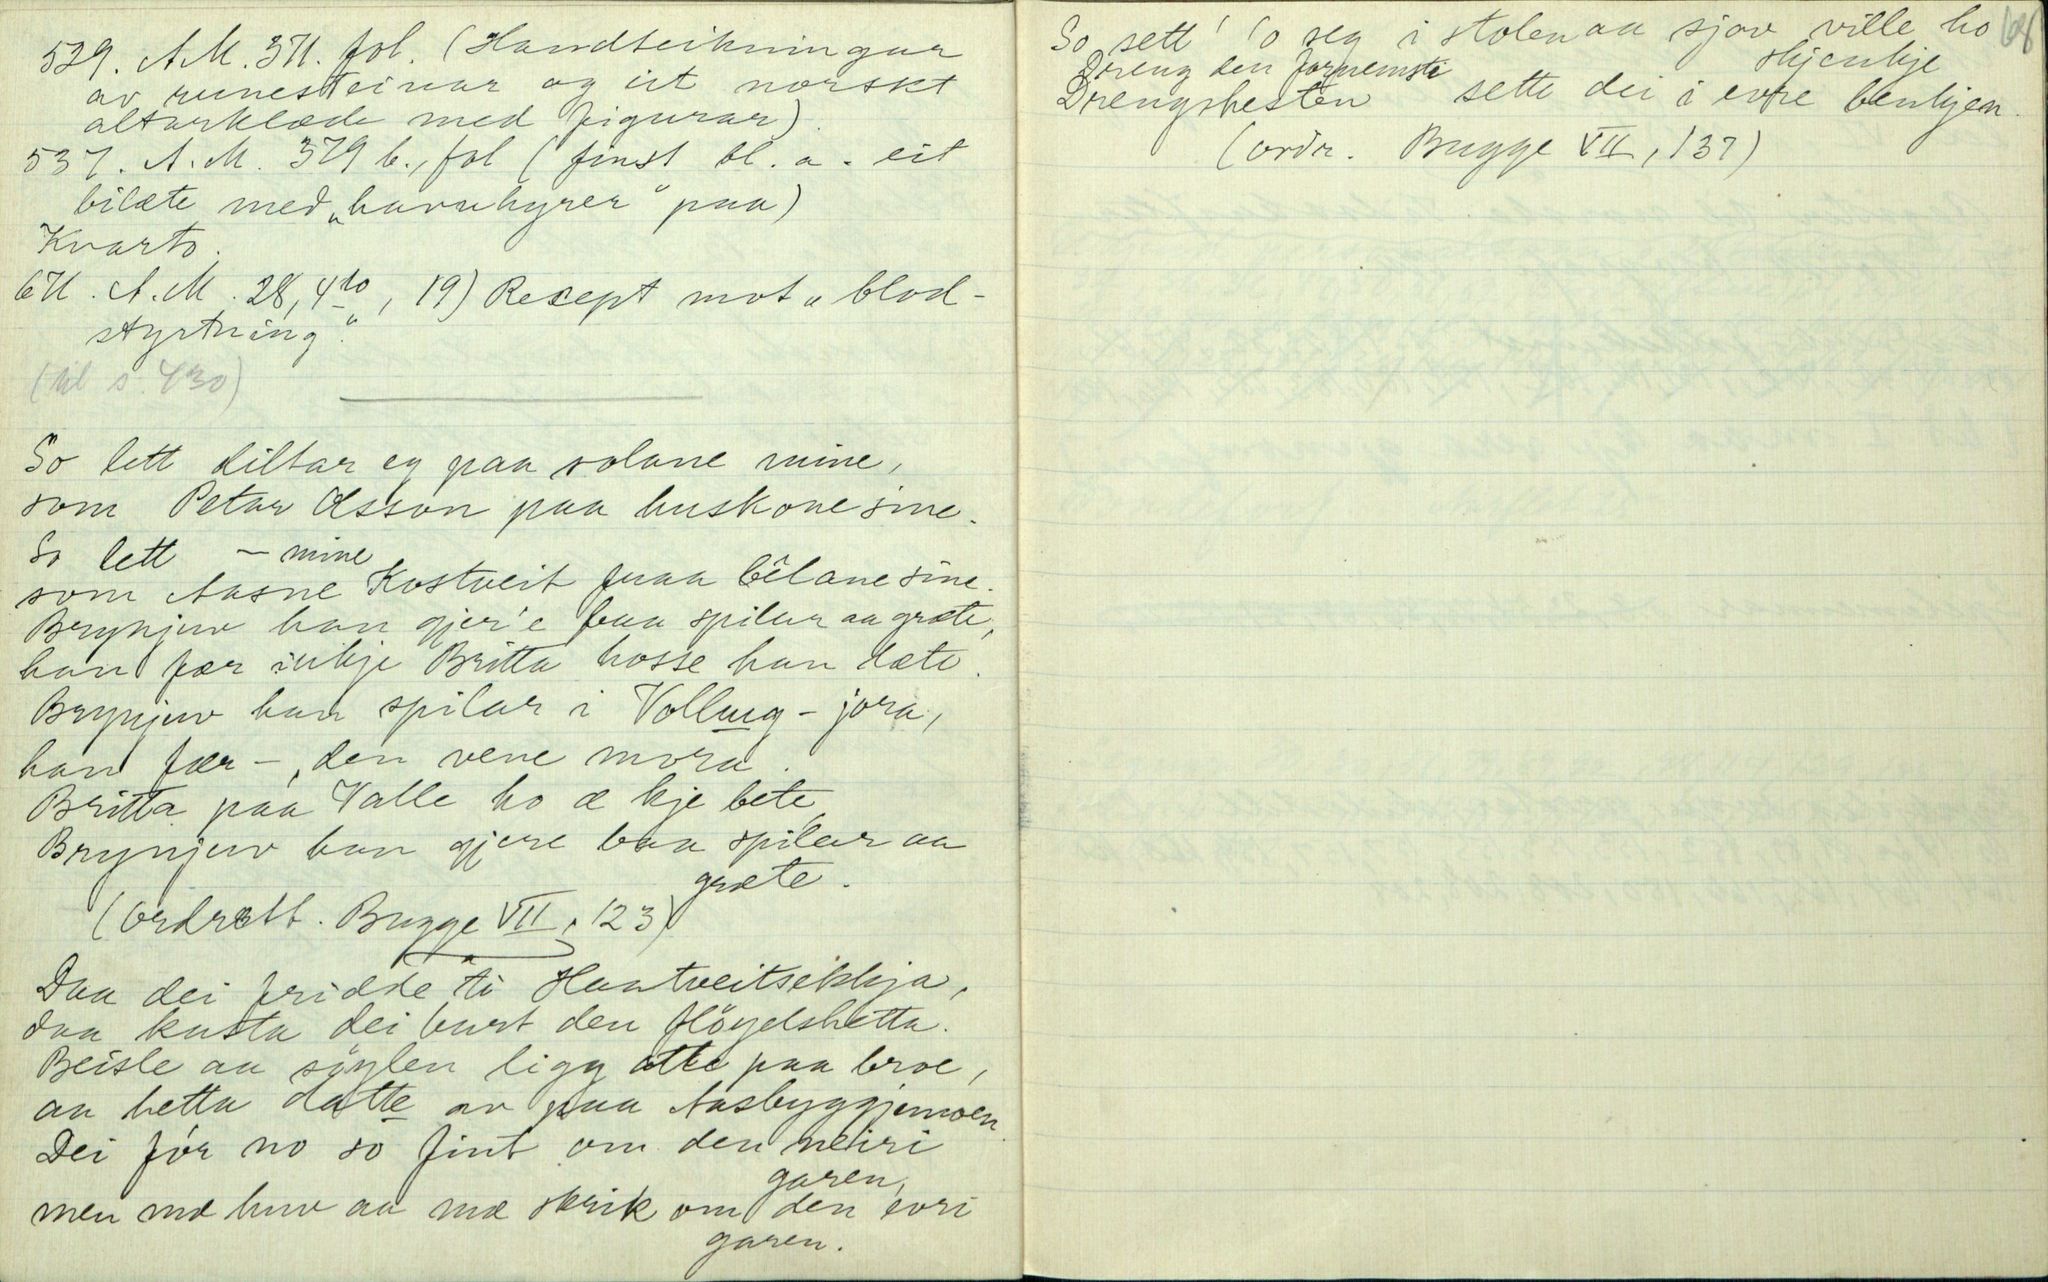 529. A.M. 371. fol. (Handteikningar
av runesteinar og eit norskt
altarklæde med figurar).
537. A.M. 379 b., fol (finst bl. a. eit
bilæte med „havuhyrer“ paa)
Kvarto.
671. A.M. 28, 4to, 19) Resept mot „blod-
styrtning“.
(til s. 430)
So lett diltar eg paa solane mine,
som Petar Olsson paa huskone sine.
So lett — mine
som Aasne Kostveit paa bêlane sine.
Brynjuv han gjer'e baa spilar aa græte,
han fær inkje Britta hosse han læte.
Brynjuv han spilar i Vollaug-jora,
han fær —, den vene mora.
Britta paa Valle ho æ kje bete,
Brynjuv han gjere baa spilar aa
græte.
(Ordrett. Bugge VII, 123)
Daa dei fridde ti Haatveitsekkja,
daa kasta dei burt den flöyelshetta.
Beisle aa söylen ligg atte paa broe,
aa hetta datte av paa Aasbyggjemoen.
Dei fór no so fint om den neiri
garen,
men mæ huv aa mæ skrik om den evri
garen.
So sett' 'o seg i stolen aa sjov ville ho
skjenkje
Dreng den fornemste
Drengshesten sette dei i evre benkjen.
(ordr. Bugge VII, 137)
68